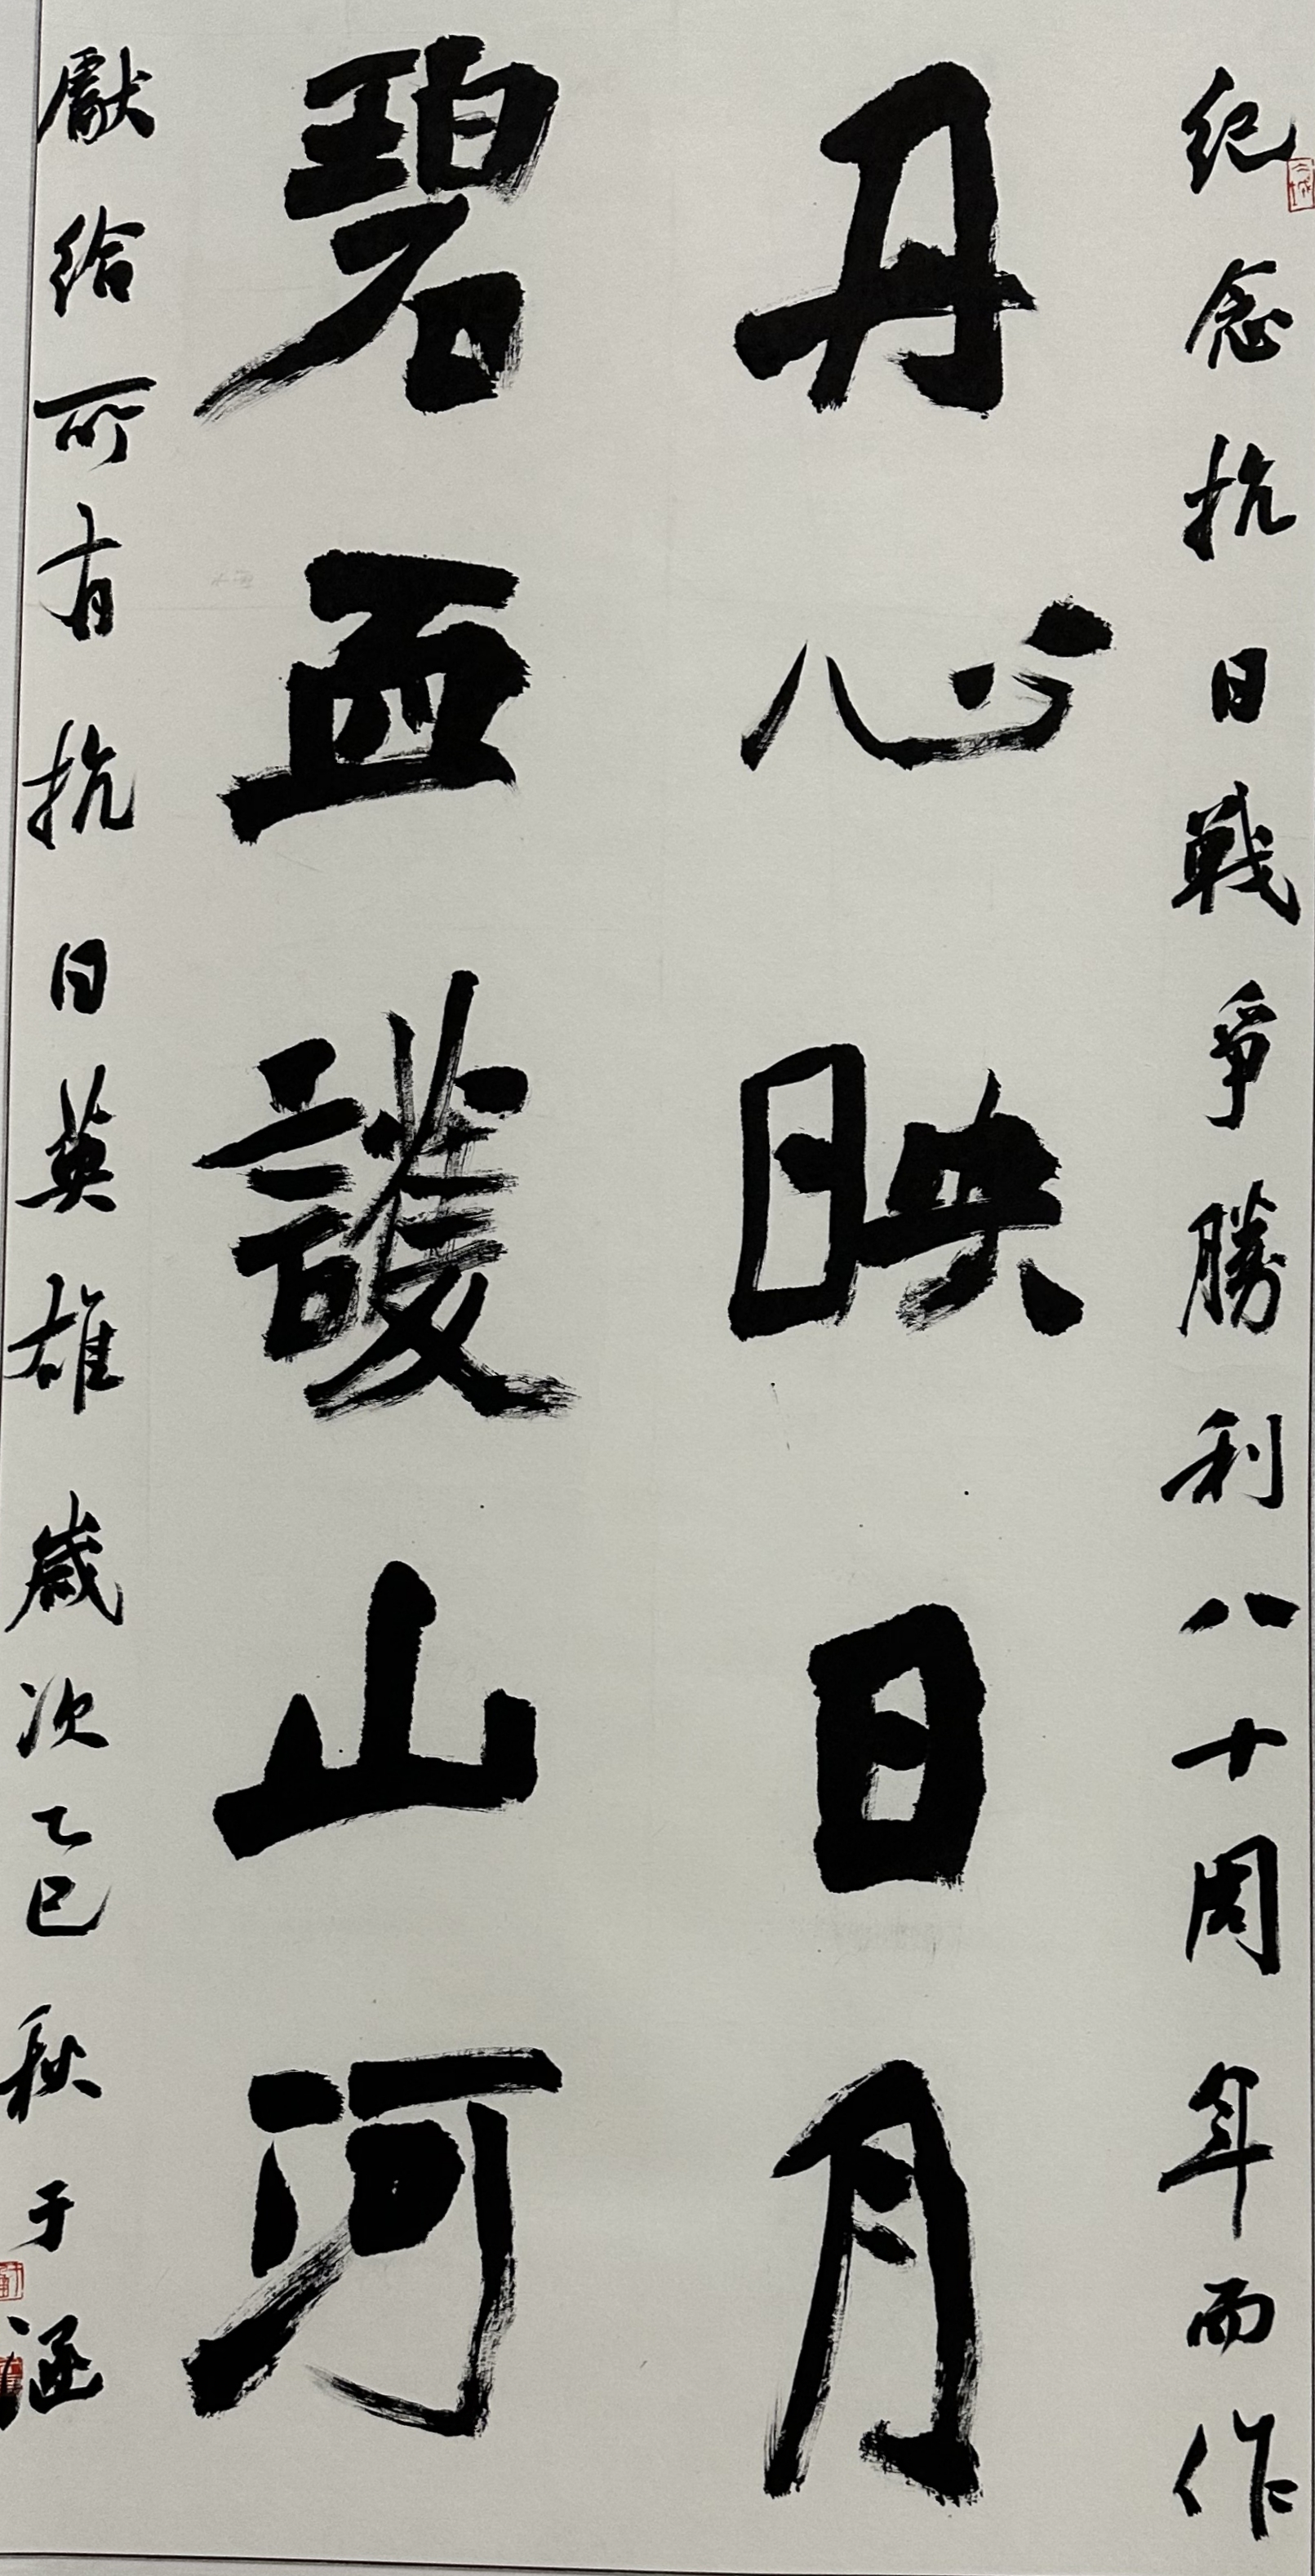 纪念抗日戰爭勝利八十周年而作
丹心映日月
碧血護山河
獻给所有抗日英雄 歲次乙巳秋于涵